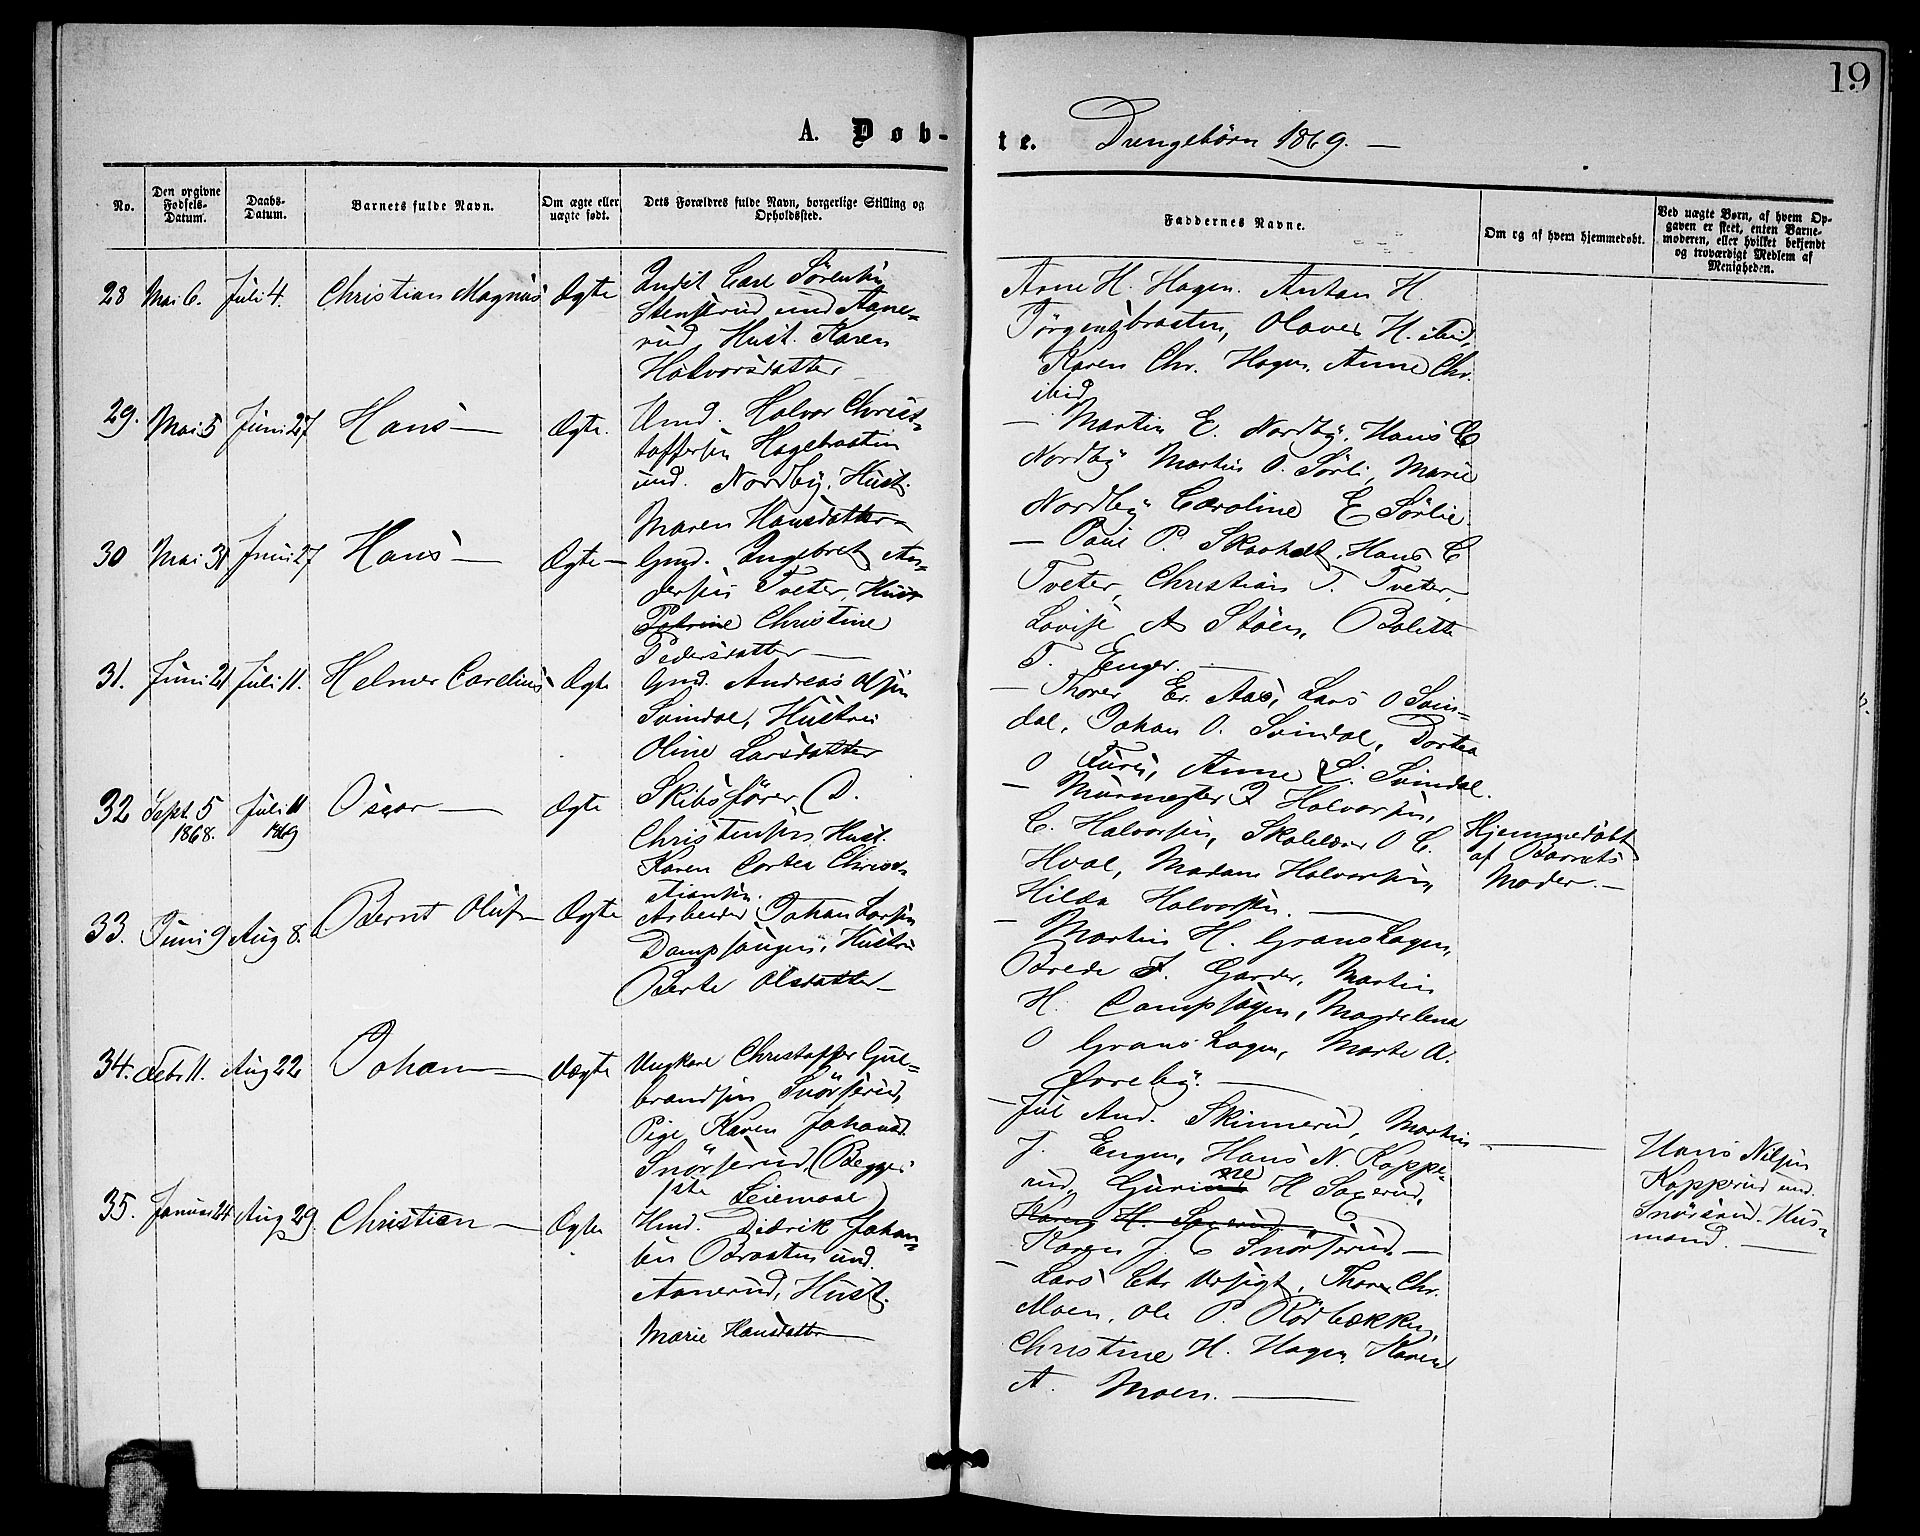 19
A. Døb-
te. Drengebørn 1869. —
No.
Den opgivne
Fødsels-
Datum.
Daabs-
Datum.
Barnets fulde Navn.
Om ægte eller
uægte født.
Dets Forældres fulde Navn, borgerlige Stilling og
Opholdssted.
Faddernes Navne.
Om og af hvem hjemmedøbt.
Ved uægte Børn, af hvem Op-
gaven er skeet, enten Barne-
moderen, eller hvilket bekjendt
og troværdigt Medlem af
Menigheden.
28 Mai 6. Juli 4. Christian Magnus Ægte
Indst Carl Sørensen
Stensrud und Aane-
rud, Hust. Karen
Halvorsdatter
Arne H. Hagen. Anton H.
Jørgensbraaten, Olaves H. ibid,
Karen Chr. Hagen, Anne Chr.
ibid
29. Mai 5 Juni 27 Hans — Ægte.
Hmd. Halvor Christ-
toffersen Hagebraaten
und. Nordby, Hust.
Maren Hansdatter —
— Martin E. Nordby, Hans C
Nordby Martin O. Sørli, Marie
Nordby Caroline E Sørlie
30 Mai 31 Juni 27 Hans — Ægte —
Gmd. Ingebret An-
dersen Tveter, Hust
Petrine Christine
Pedersdatter —
— Paul P. Skaaholt, Hans C
Tveter, Christian T. Tveter,
Lovise A Støen, Bolette
T. Enger. —
31. Juni 21 Juli 11. Helmer Carelius Ægte
Gmd. Andreas Olsen
Svindal, Hustru
Oline Larsdatter
— Thorer Er. Aas, Lars O Svin-
dal, Johan O. Svindal, Dortea
O Furu, Anne L. Svindal.
32 Sept. 5 1868. Juli 11 1869 Oscar — Ægte
Skibsfører D.
Christensen Hust.
Karen Dortea Chris-
tiansen.
— Murmester J Halvorsen,
C. Halvorsen, Skolelærer O C.
Hval, Madam Halvorsen,
Hilda Halvorsen. —
Hjemmedøbt
af Barnets
Moder. —
33. Juni 9 Aug 8. Bernt Oluf — Ægte
Arbeider Johan Larsen
Dampsaugen, Hustru
Berte Olsdatter —
— Martin H. Granshagen,
Brede F. Garder, Martin
H. Dampsagen, Magdelena
O Granshagen, Marte A.
Ørreby. —
34. Febr 11. Aug 22 Johan — Uægte
Ungkarl Christoffer Gul-
brandsen Snørserud,
Pige Karen Johansd.
Snørserud (Begges
1ste Leiemaal)
— Jul And. Skinnerud, Martin
J. Engen, Hans N. Koppe-
rud, Gurine H Saxerud,
Karen H. Saxerud,
Karen J. C Snørserud —
Hans Nilsen
Kopperud und.
Snørserud. Hus-
mand. —
35. Januar 24 Aug 29. Christian — Ægte
Hmd. Didrik Johan-
sen Braaten und.
Aanerud, Hust.
Marie Hansdatter —
— Lars Chr Ursigt, Thorer Chr.
Moen, Ole P. Rødbækken,
Christine H. Hagen, Karen
A. Moen. —